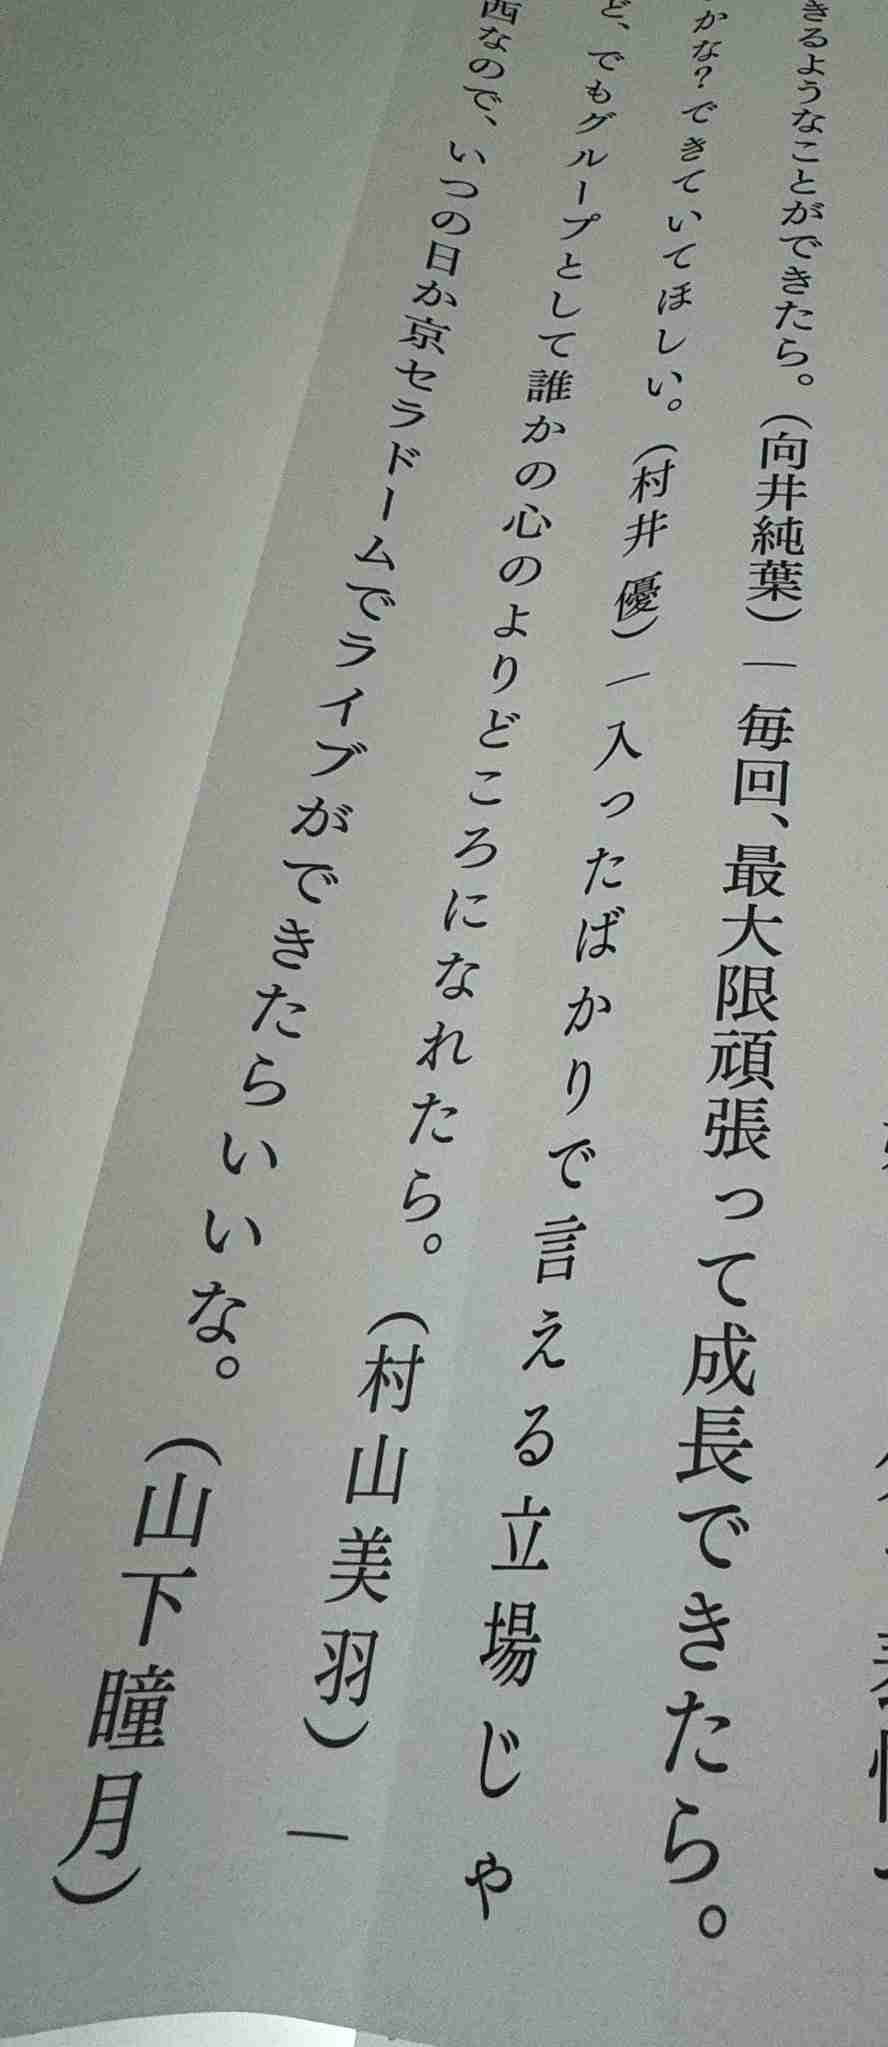 きるようなことができたら。（向井純葉）― 毎回、最大限頑張って成長できたら。
かな？できていてほしい。（村井 優）― 入ったばかりで言える立場じゃ
ど、でもグループとして誰かの心のよりどころになれたら。（村山美羽）―
西なので、いつの日か京セラドームでライブができたらいいな。（山下瞳月）